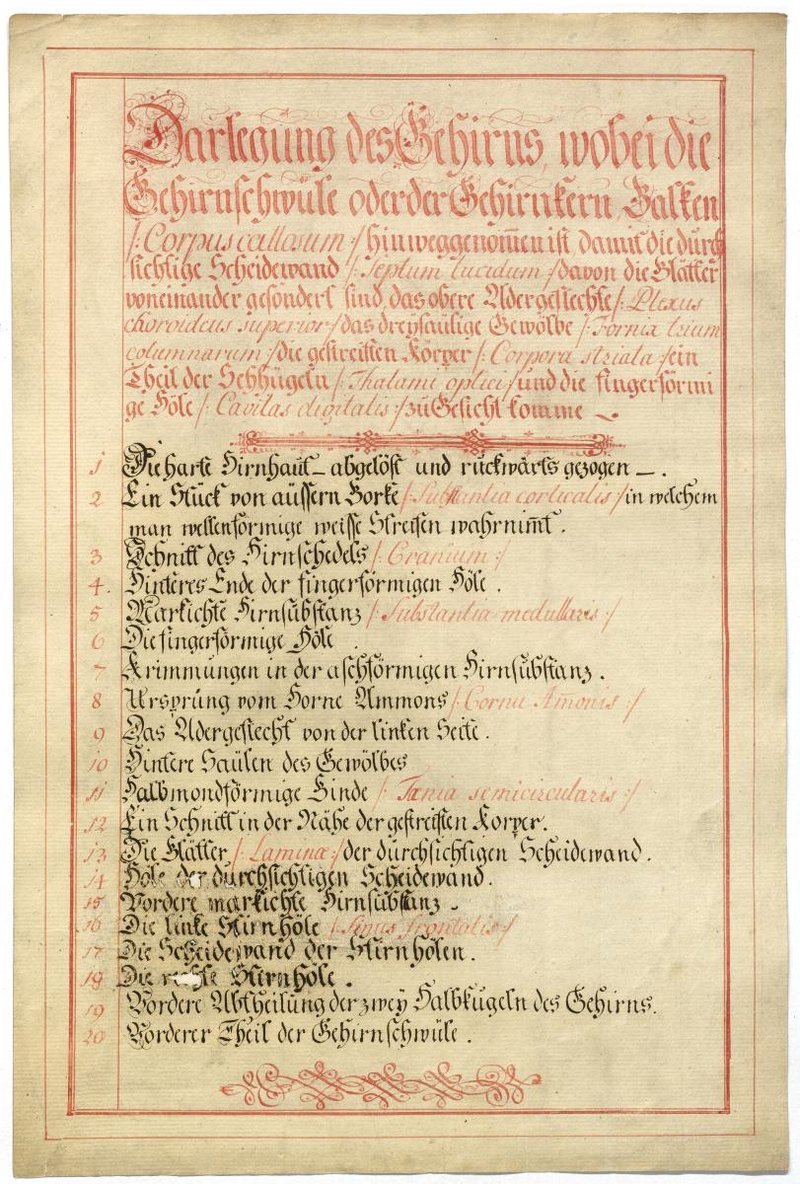 Darlegung des Gehirns, wobei die
Gehirnschwüle oder der Gehirnkern, Balken
/: Corpus callosum :/ hinweggenom̄en ist, damit die durch
sichtige Scheidewand /: Septum lucidum :/ davon die Blätter
voneinander gesondert sind, das obere Adergeflechte /: Plexus
choroideus superior :/ das dreysäulige Gewölbe /: Fornix trium
columnarum :/ die gestreiften Körper /: Corpora striata :/ ein
Theil der Sehhügeln /: Thalami optici :/ und die fingerförmi
ge Höle /: Cavitas digitalis :/ zu Gesicht komme
1 Die harte Hirnhaut abgelöst und rückwärts gezogen.
2 Ein Stück von äussern Borke /: Substantia corticalis :/ in welchem
man wellenförmige weisse Streifen wahrnim̄t.
3 Schnitt des Hirnschedels /: Cranium :/
4. Hinteres Ende der fingerförmigen Höle.
5 Markichte Hirnsübstanz /: Substantia medullaris :/
6 Die fingerförmige Höle.
7 Krimmungen in der aschförmigen Hirnsübstanz.
8 Ursprüng vom Horne Ammons /: Cornu Am̄onis :/
9 Das Adergeflecht von der linken Seite.
10 Hintere Säulen des Gewölbes
11 Halbmondförmige Binde /: Tænia semicircularis :/
12 Ein Schnitt in der Nähe der gestreiften Korper.
13 Die Blätter /: Laminæ :/ der dürchsichtigen Scheidewand.
14 Höle der dürchsichtigen Scheidewand.
15 Vordere markichte Hirnsübstanz.
16 Die linke Stirnhöle /: Sinus frontalis :/
17 Die Scheidewand der Stirnhölen.
18 Die rechte Stirnhöle.
19 Vordere Abtheilüng der zwey Halbkugeln des Gehirns.
20 Vorderer Theil der Gehirnschwüle.